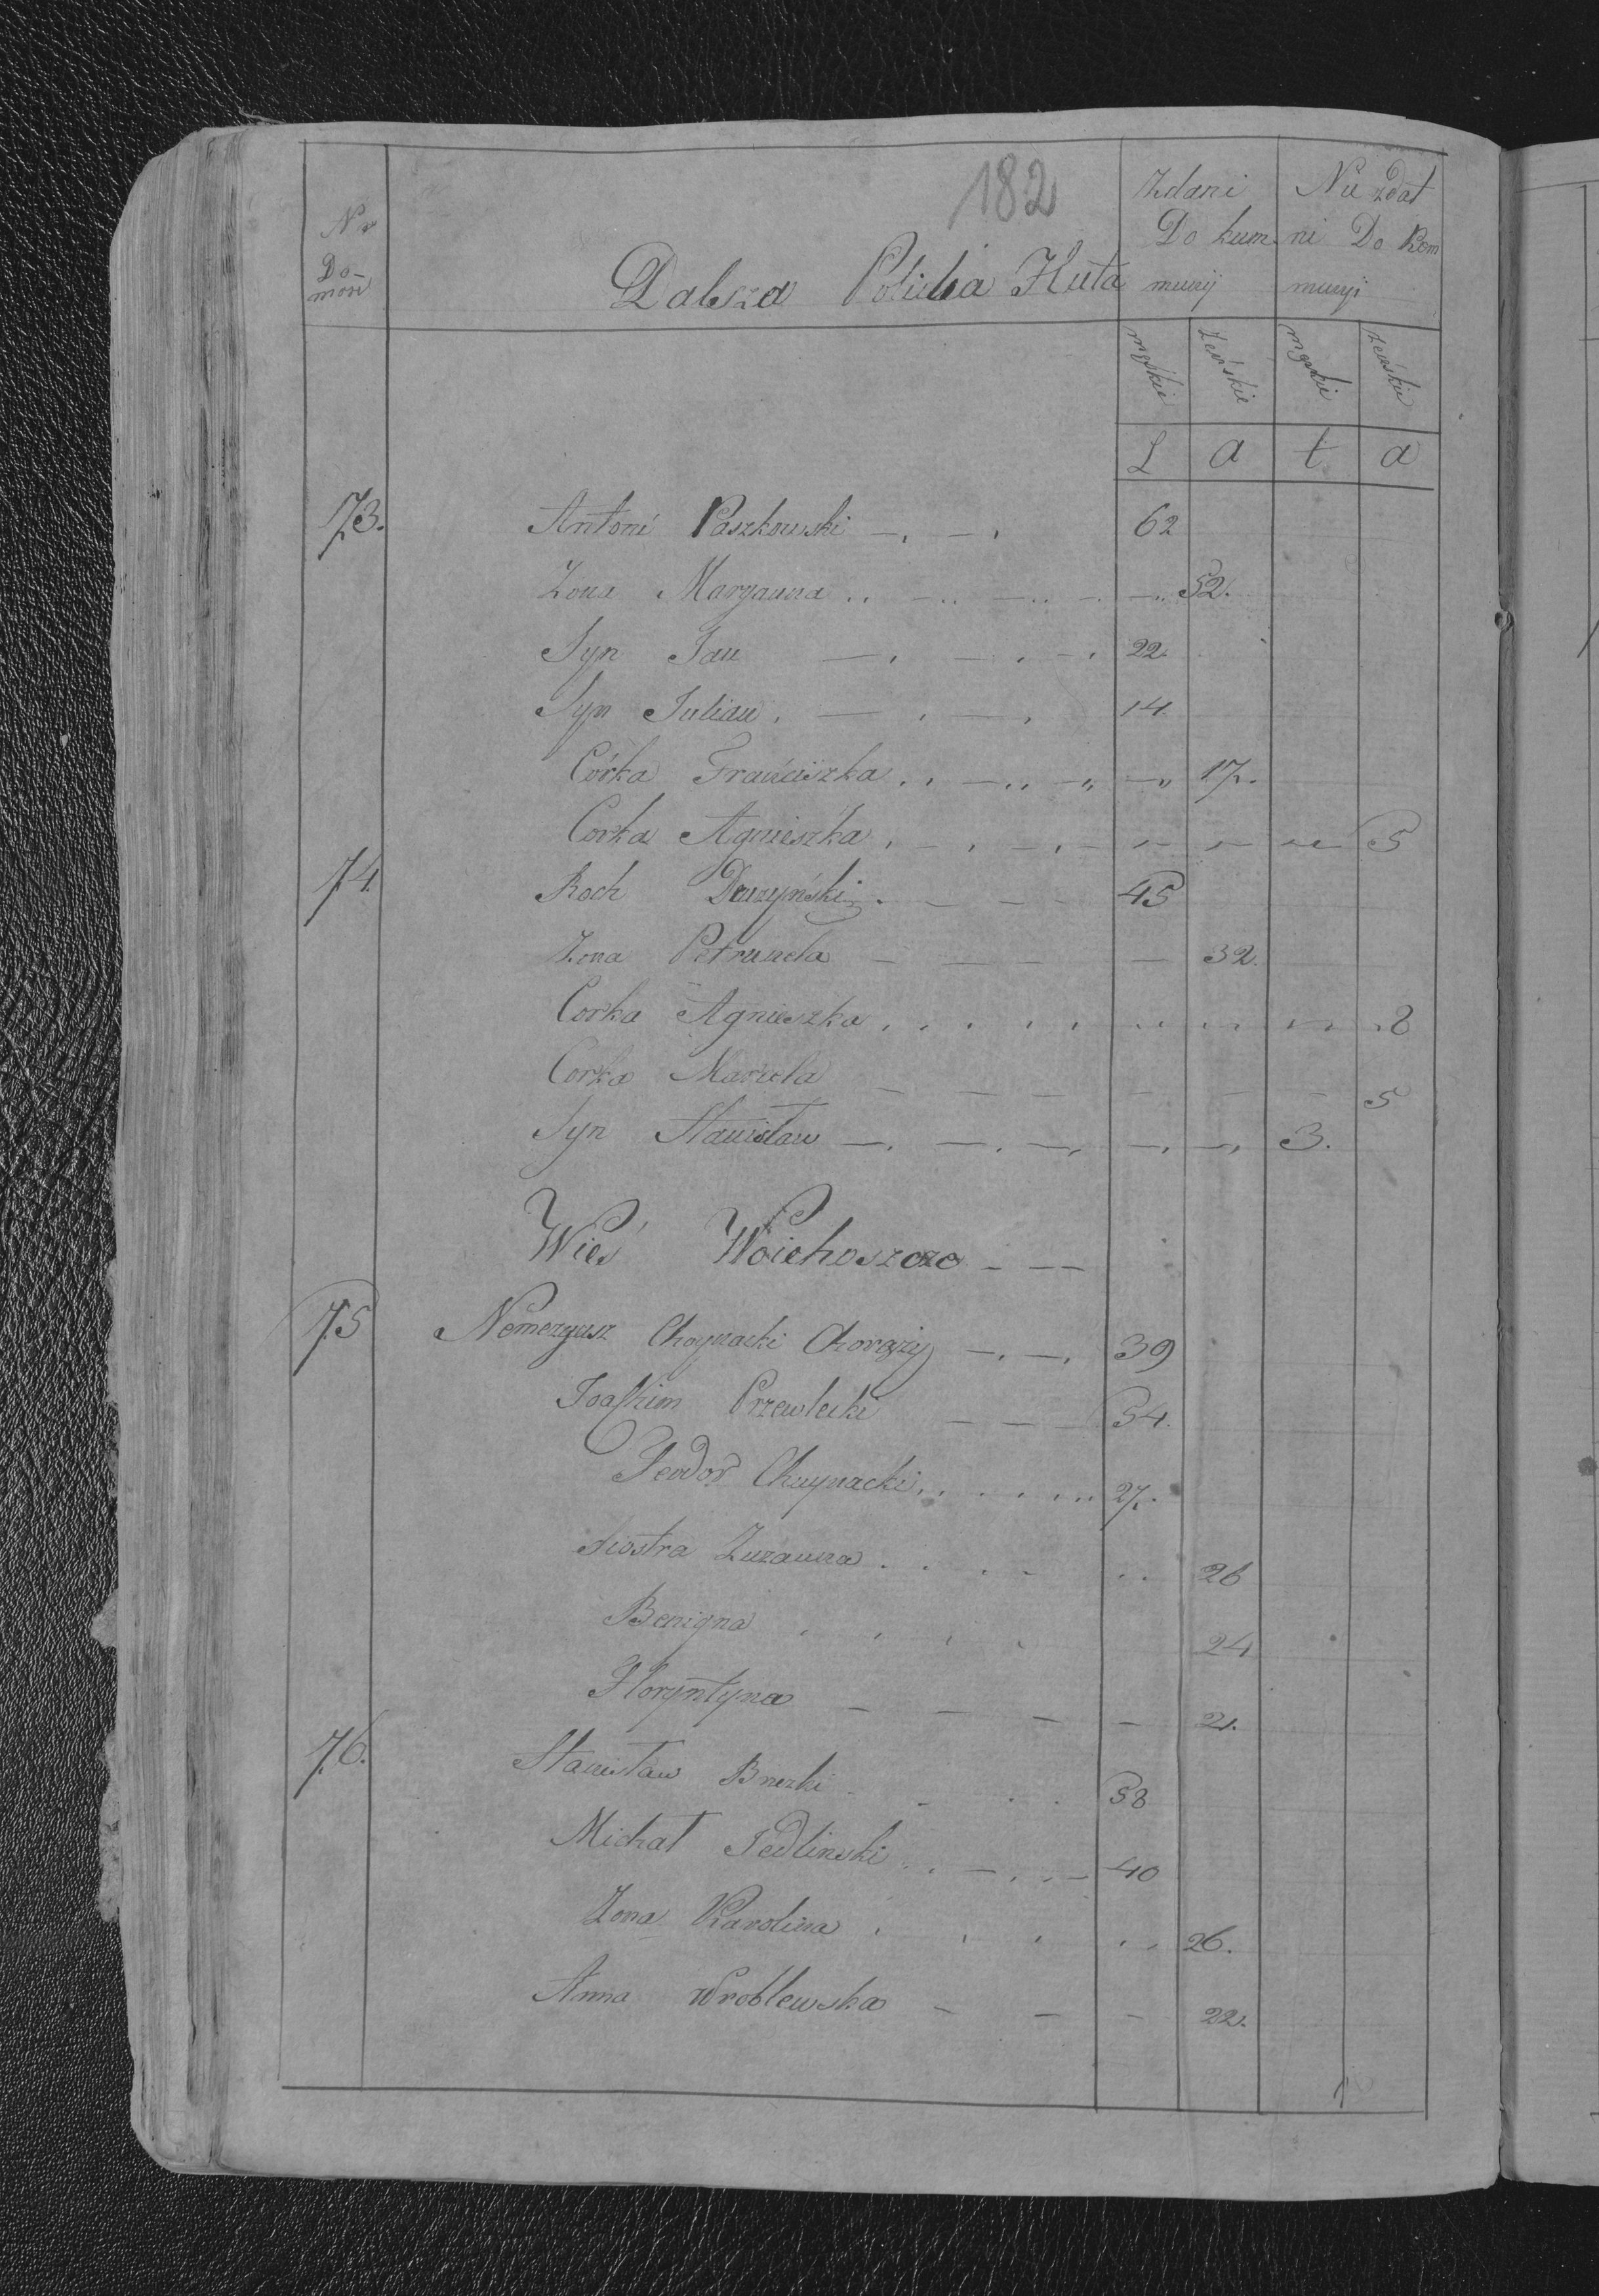 182
Nr Domów
Dalsza Policka Huta
Zdani Do kommunij
Nie zdatni Do Kommunyi
męskie żeńskie męskie żeńskie
L a t a
73. Antoni Paszkowski 62
Zona Maryanna 52.
Syn Jan 22.
Syn Julian 14
Córka Franciszka 17.
Corka Agnieszka 5
74 Roch 45
Zona Petrunela 32.
Corka Agnieszka 8
Corka Mariela 5
Syn Stanisław 3.
Wieś Woiehoszcza
75 Nemezyusz Choynacki Chorąży 39
Joachim Przewlecki 54.
Teodor Chaynacki 27.
Siostra Zuzanna 26
Benigna 24
Floryntyna 21.
76. Stanisław 58
Michał Jedlinski 40
Zona Karolina 26.
Anna Wroblewska 22.